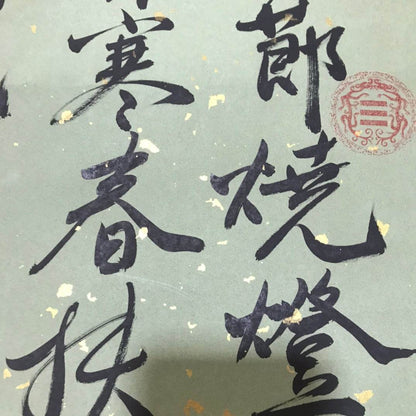 節燒燈
寒春扶